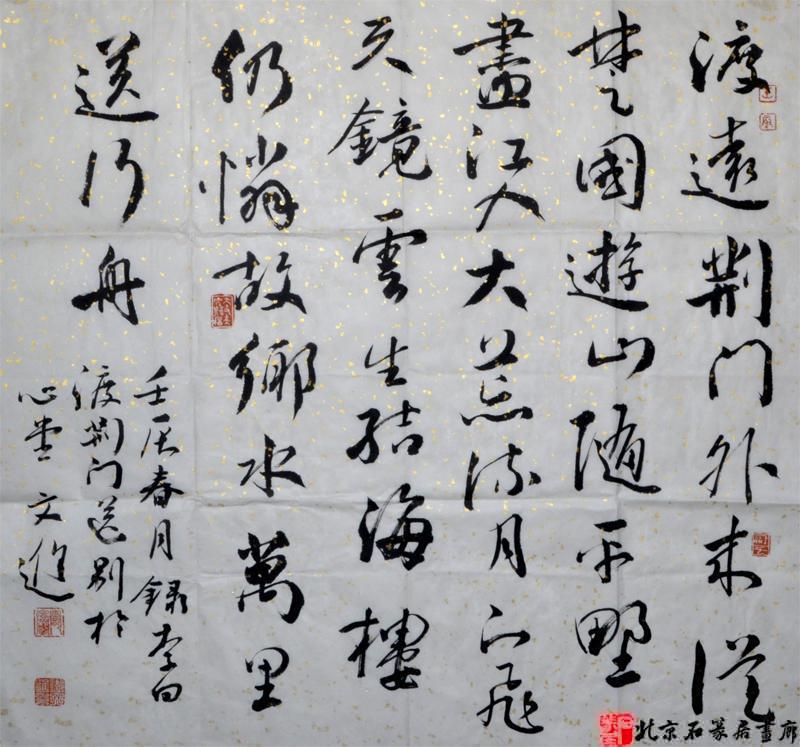 渡遠荆門外来從
楚國遊山隨平野
盡江入大荒流月下飛
天鏡雲生結海樓
仍憐故鄉水萬里
送行舟
壬辰春月録李白
渡荆門送別於
心堂文進
北京石篆居畫廊